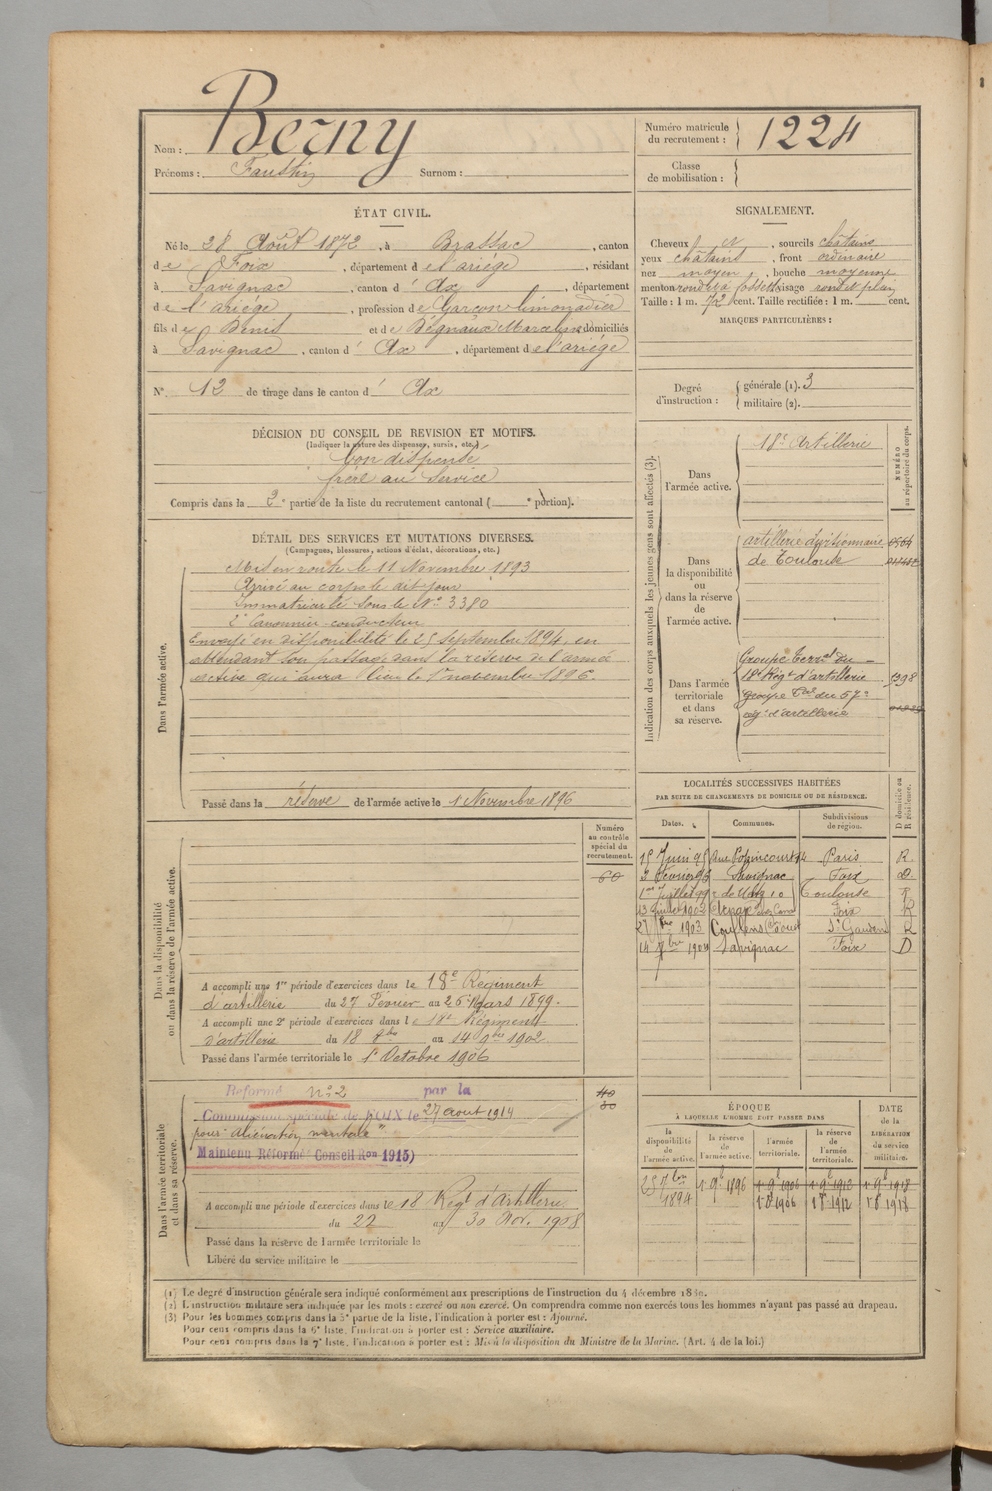 Nom : Berny
Prénoms : Faustin Surnom :
Numéro matricule du recrutement : 1224
Classe de mobilisation :
ÉTAT CIVIL.
Né le 28 Août 1872, à Brassac, canton
de Foix, département de l'ariége, résidant
à Savignac, canton d' Ax, département
de l'ariége, profession de Garçon limonadier
fils de Denis et de Begnaux Marcelin domiciliés
à Savignac, canton d' Ax, département de l'ariége
N° 12 de tirage dans le canton d' Ax
SIGNALEMENT.
Cheveux et, sourcils châtains
yeux châtains, front ordinaire
nez moyen, bouche moyenne
menton rond à fossette visage rond et plein
Taille : 1 m. 72 cent. Taille rectifiée : 1 m. cent.
MARQUES PARTICULIÈRES :
Degré d'instruction : générale (1). 3
militaire (2).
DÉCISION DU CONSEIL DE REVISION ET MOTIFS.
(Indiquer la nature des dispenses, sursis, etc.)
bon dispensé
frère au Service
Compris dans la 2e partie de la liste du recrutement cantonal ( e portion).
DÉTAIL DES SERVICES ET MUTATIONS DIVERSES.
(Campagnes, blessures, actions d'éclat, décorations, etc.)
Dans l'armée active.
Mis en route le 11 Novembre 1893
Arrivé au corps le dit jour
Immatriculé sous le N° 3380
2e Canonnier conducteur
Envoyé en disponibilité le 25 septembre 1894, en
attendant son passage dans la réserve de l'armée
active qui aura lieu le 1er novembre 1896.
Passé dans la réserve de l'armée active le 1 Novembre 1896
Indication des corps auxquels les jeunes gens sont affectés (3).
NUMÉRO au répertoire du corps.
Dans l'armée active.
18e Artillerie
Dans la disponibilité ou dans la réserve de l'armée active.
artillerie divisionnaire
de Toulouse
Dans l'armée territoriale et dans sa réserve.
Groupe Terral du
18e Régt d'artillerie 1398
groupe Tal du 57e
rgt d'artillerie
LOCALITÉS SUCCESSIVES HABITÉES
PAR SUITE DE CHANGEMENTS DE DOMICILE OU DE RÉSIDENCE.
Dates. Communes. Subdivisions de région. D domicile ou R résidence.
15 Juin 95 Rue Popincourt Paris R.
3 Février 96 Savignac Foix D.
1er Juillet 99 r de Metz 10 Toulouse R
13 Juillet 1902 Foix R
27 1903 St Gaudens R
14 7bre 1904 Savignac Foix D
Dans la disponibilité ou dans la réserve de l'armée active.
Numéro au contrôle spécial du recrutement.
60
A accompli une 1re période d'exercices dans le 18e Régiment
d'artillerie du 27 Février au 26 Mars 1899.
A accompli une 2e période d'exercices dans le 18e Régiment
d'artillerie du 18 8bre au 14 9bre 1902
Passé dans l'armée territoriale le 1er Octobre 1906
Dans l'armée territoriale et dans sa réserve.
Réformé n° 2 par la
Commission spéciale de FOIX le 27 aout 1914
pour "aliénation mentale"
Maintenu Réformé (Conseil Ron 1915)
A accompli une période d'exercices dans le 18 Régt d'Artillerie
du 22 au 30 Nov. 1908
Passé dans la réserve de l'armée territoriale le
Libéré du service militaire le
ÉPOQUE
À LAQUELLE L'HOMME DOIT PASSER DANS
la disponibilité de l'armée active. la réserve de l'armée active. l'armée territoriale. la réserve de l'armée territoriale.
DATE de la LIBÉRATION du service militaire.
25 7bre 1894 1er 9e 1896 1er 9e 1906 1er 9e 1912 1er 9e 1918
1er 8e 1906 1er 8e 1912 1er 8e 1918
(1) Le degré d'instruction générale sera indiqué conformément aux prescriptions de l'instruction du 4 décembre
(2) L'instruction militaire sera indiquée par les mots : exercé ou non exercé. On comprendra comme non exercés tous les hommes n'ayant pas passé au drapeau.
(3) Pour les hommes compris dans la 5e partie de la liste, l'indication à porter est : Ajourné.
Pour ceux compris dans la 6e liste, l'indication à porter est : Service auxiliaire.
Pour ceux compris dans la 7e liste, l'indication à porter est : Mis à la disposition du Ministre de la Marine. (Art. 4 de la loi.)